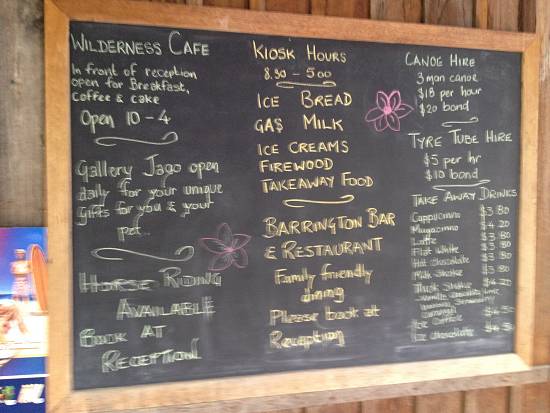 WILDERNESS CAFE
In front of reception
open for Breakfast,
Coffee & cake
Open 10 - 4
Gallery Jago open
daily for your unique
Gifts for you & your
pet...
HORSE RIDING
AVAILABLE
BOOK AT
RECEPTION
KIOSK HOURS
8.30 - 5.00
ICE BREAD
GAS MILK
ICE CREAMS
FIREWOOD
TAKEAWAY FOOD
BARRINGTON BAR
& RESTAURANT
Family friendly
dining
Please book at
Reception
CANOE HIRE
3 man canoe
$18 per hour
$20 bond
TYRE TUBE HIRE
$5 per hr
$10 bond
TAKE AWAY DRINKS
Cappuccino $3.80
Mugaccino $4.20
Latte $3.80
Flat White $3.80
Hot chocolate $3.80
Milk Shake $3.80
Thick Shake $4.50
Ice Coffee $4.50
Ice chocolate $4.50